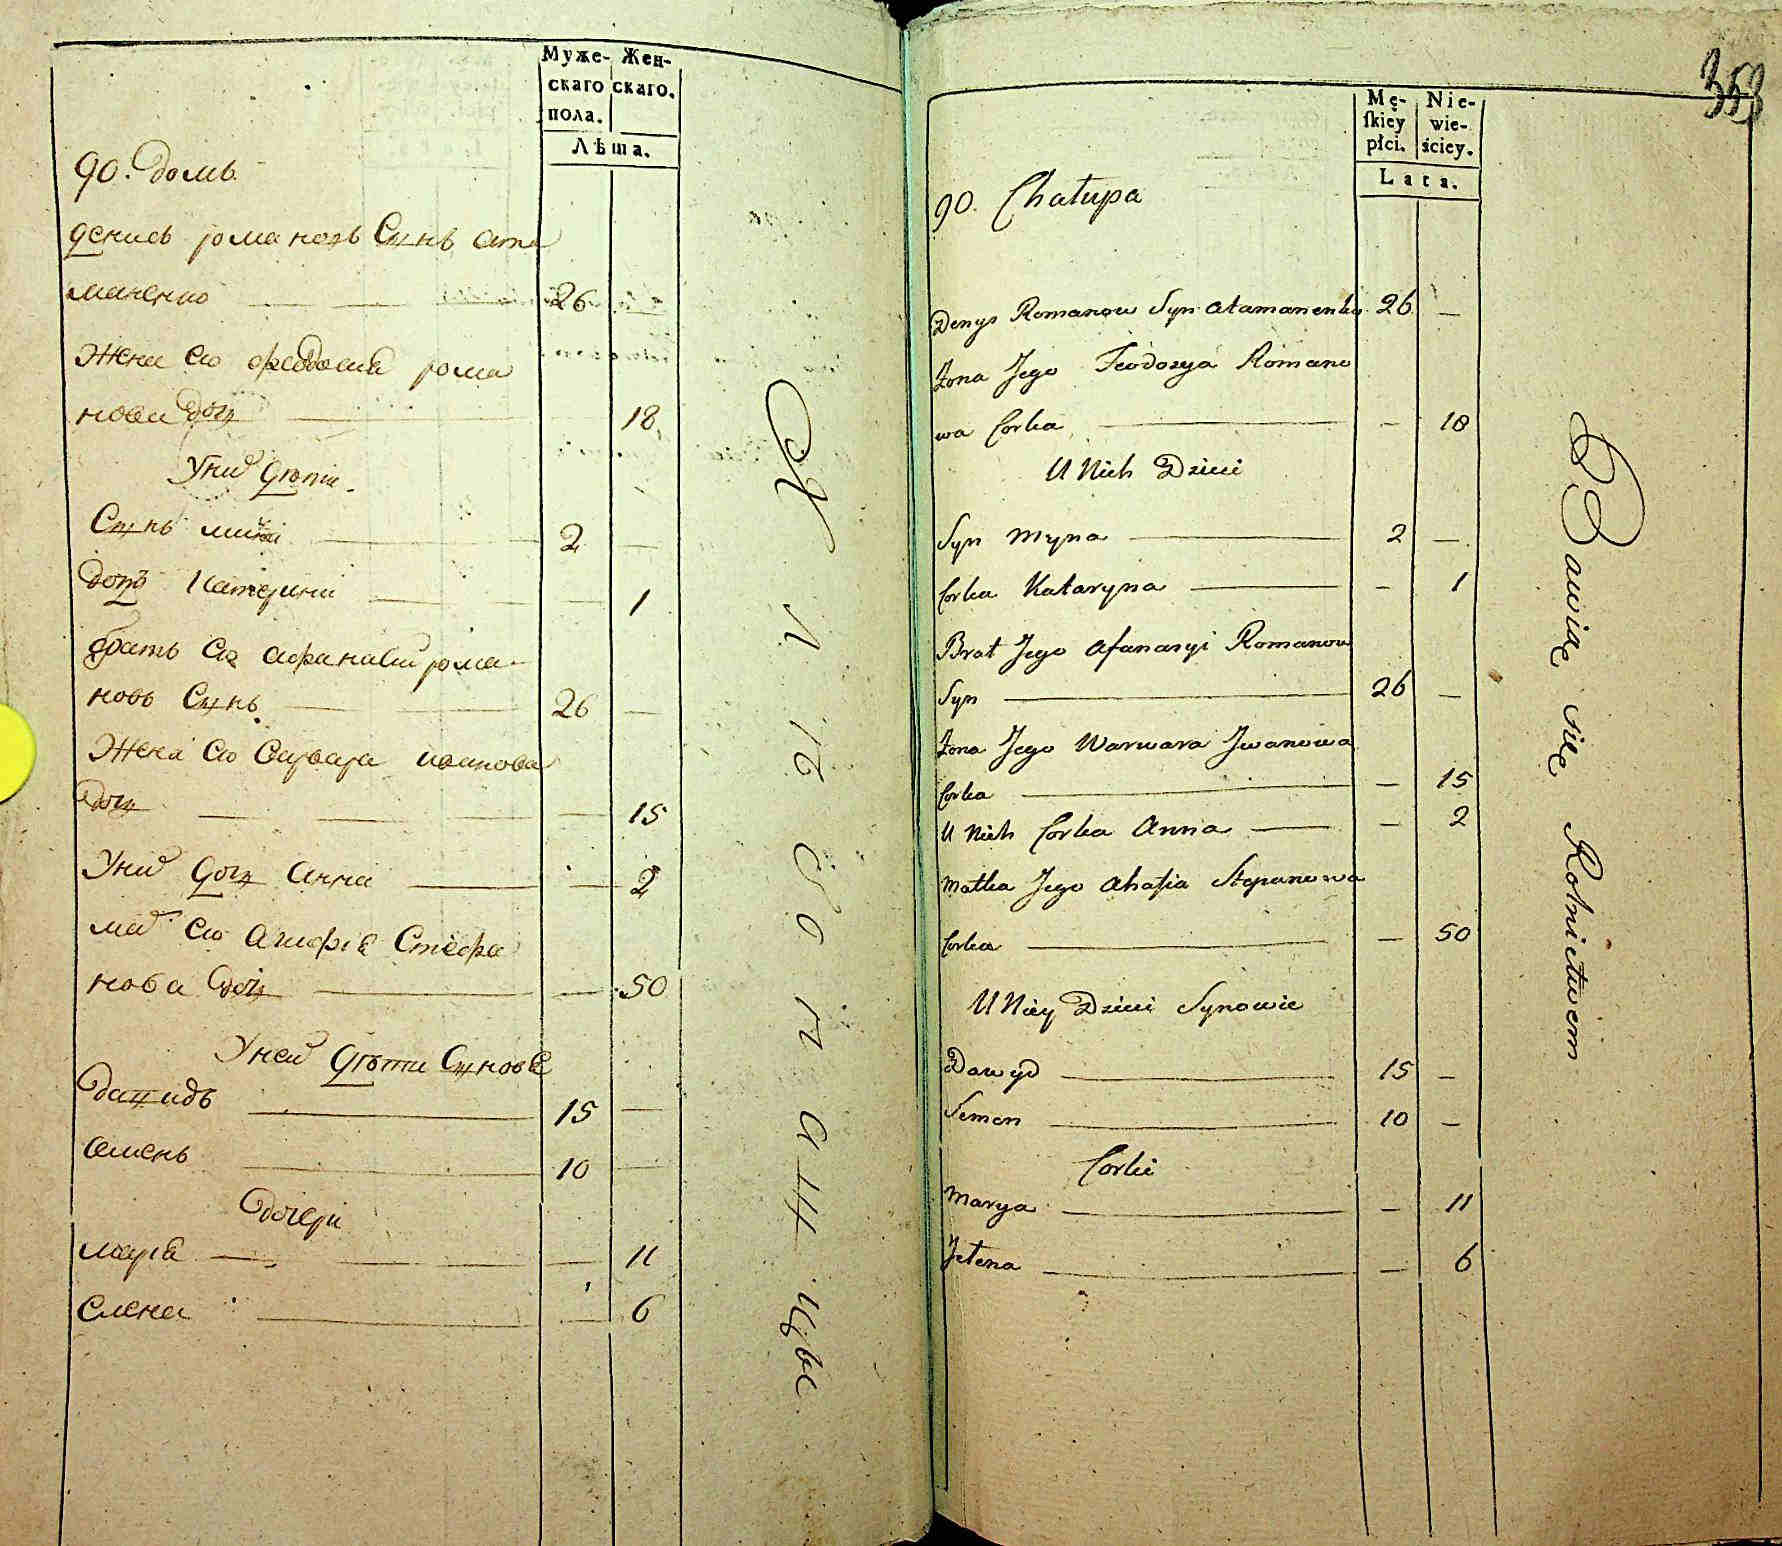 Муже- Жен-
скаго скаго.
пола.
Лѣта.
90. Домъ
Денисъ романовъ Сынъ ата
маненко 26
Жена его феодосиа рома
нова Дочь 18
У них Дѣти
Сынъ мина 2
дочь Катерина 1
братъ его афанасий рома-
новъ Сынъ 26
Жена его варвара иванова
Дочь 15
У них Дочь Анна 2
мат его Агафіа Стефа
нова Дочь 50
У ней Дѣти Сынове
Давидъ 15
семенъ 10
Дочери
мариа 11
елена 6
Хлѣбопашцы
353
Mę- Nie-
skiey wie-
płci. ściey.
Lata.
90. Chałupa
Denys Romanow Syn atamanenko 26 —
Żona Jego Feodosya Romano
wa Corka — 18
U Nich Dzieci
Syn Myna 2 —
Corka Kataryna — 1
Brat Jego afanasyi Romanow
Syn 26 —
Żona Jego Warwara Jwanowa
Corka — 15
U Nich Corka Anna — 2
Matka Jego Ahafia Stepanowa
Corka — 50
U Niey Dzieci Synowie
Dawyd 15 —
Semen 10 —
Corki
Marya — 11
Jełena — 6
Bawią się Rolnictwem